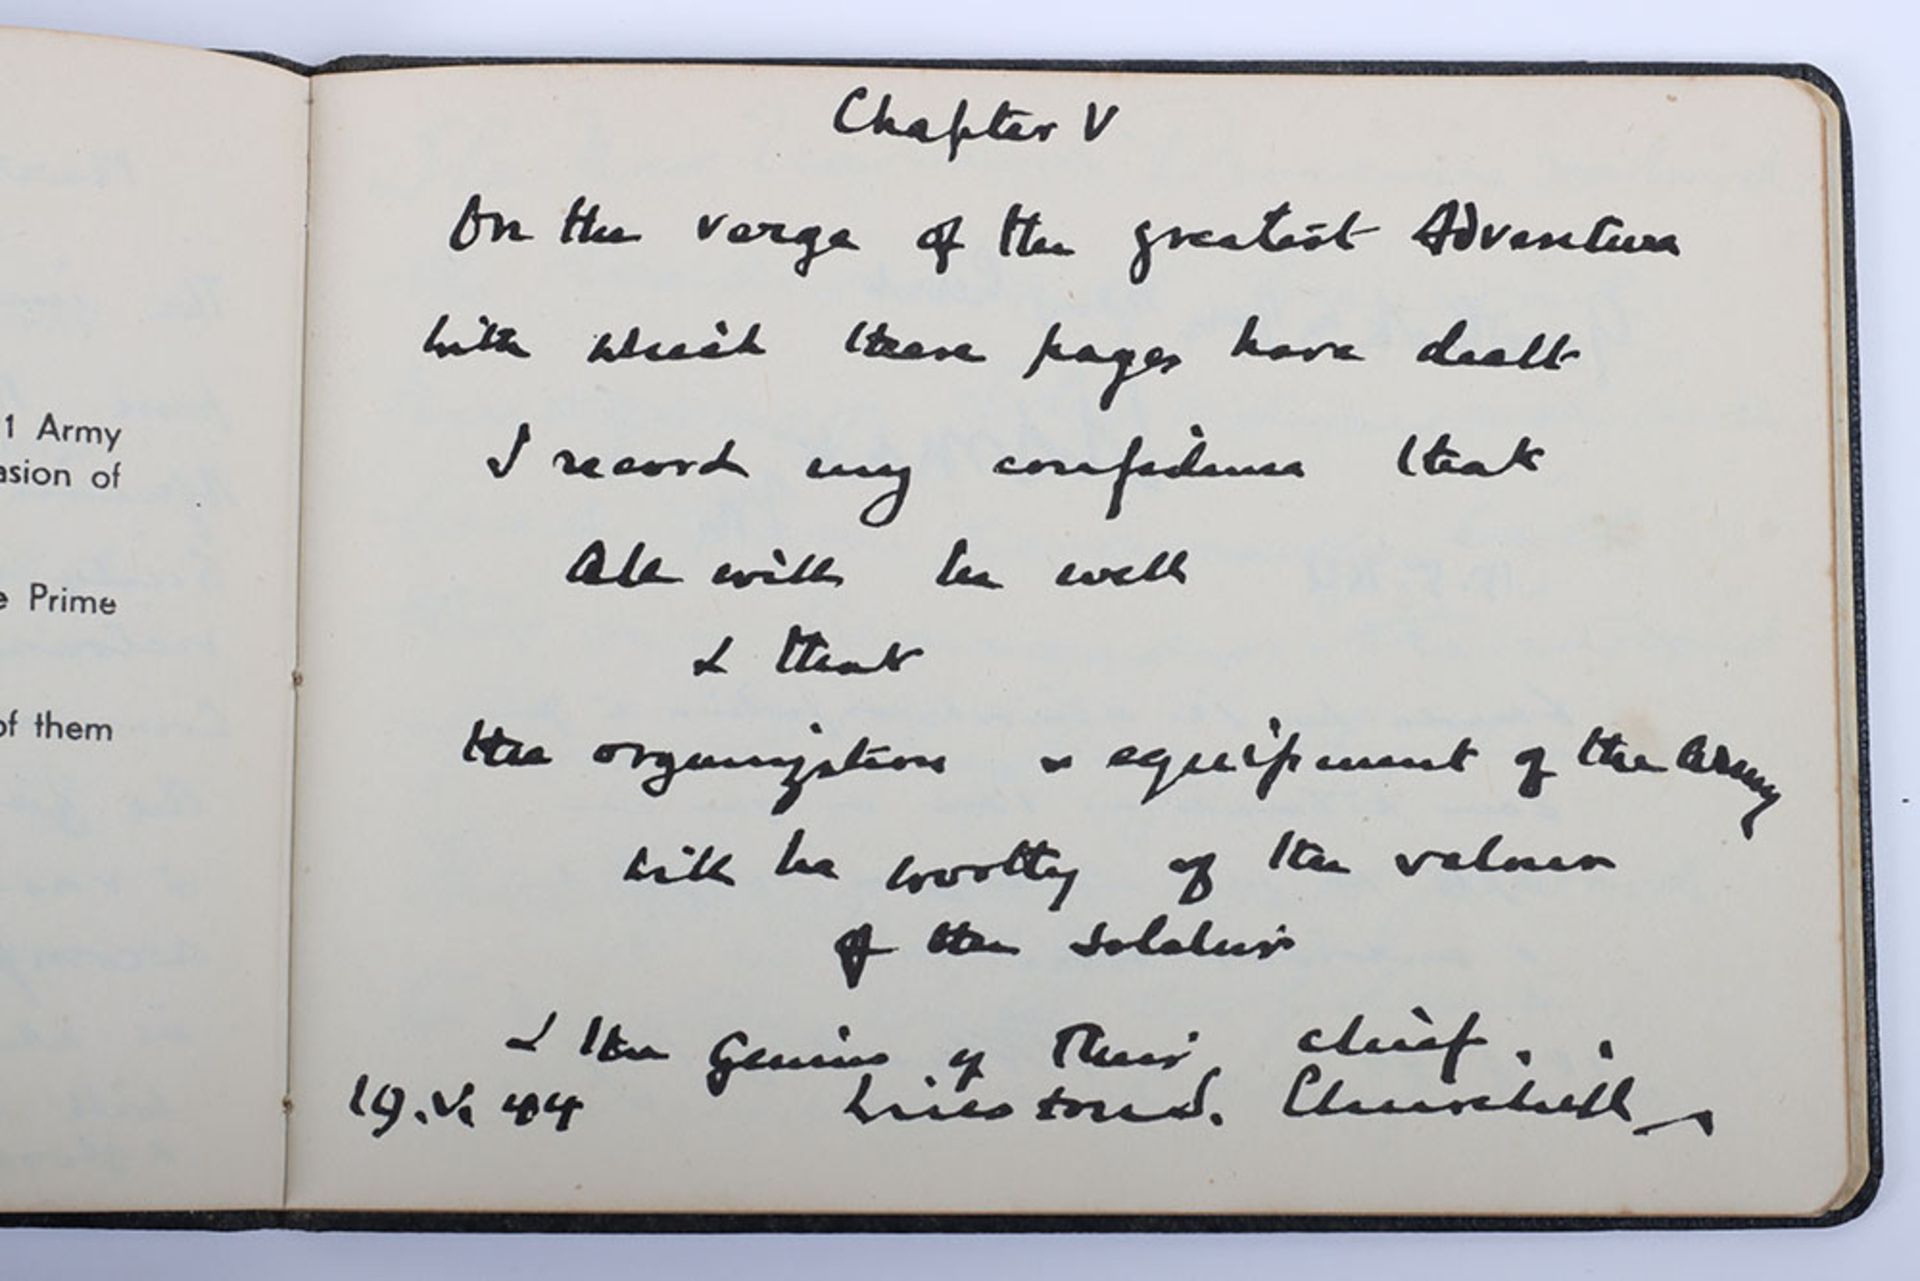 1 Army
asion of
e Prime
of them
Chapter V
On the verge of the greatest Adventure
with which these pages have dealt
I record my confidence that
all will be well
& that
the organization & equipment of the Army
will be worthy of the valour
of the soldiers
& the genius of their chief.
19.V.44 Winston S. Churchill